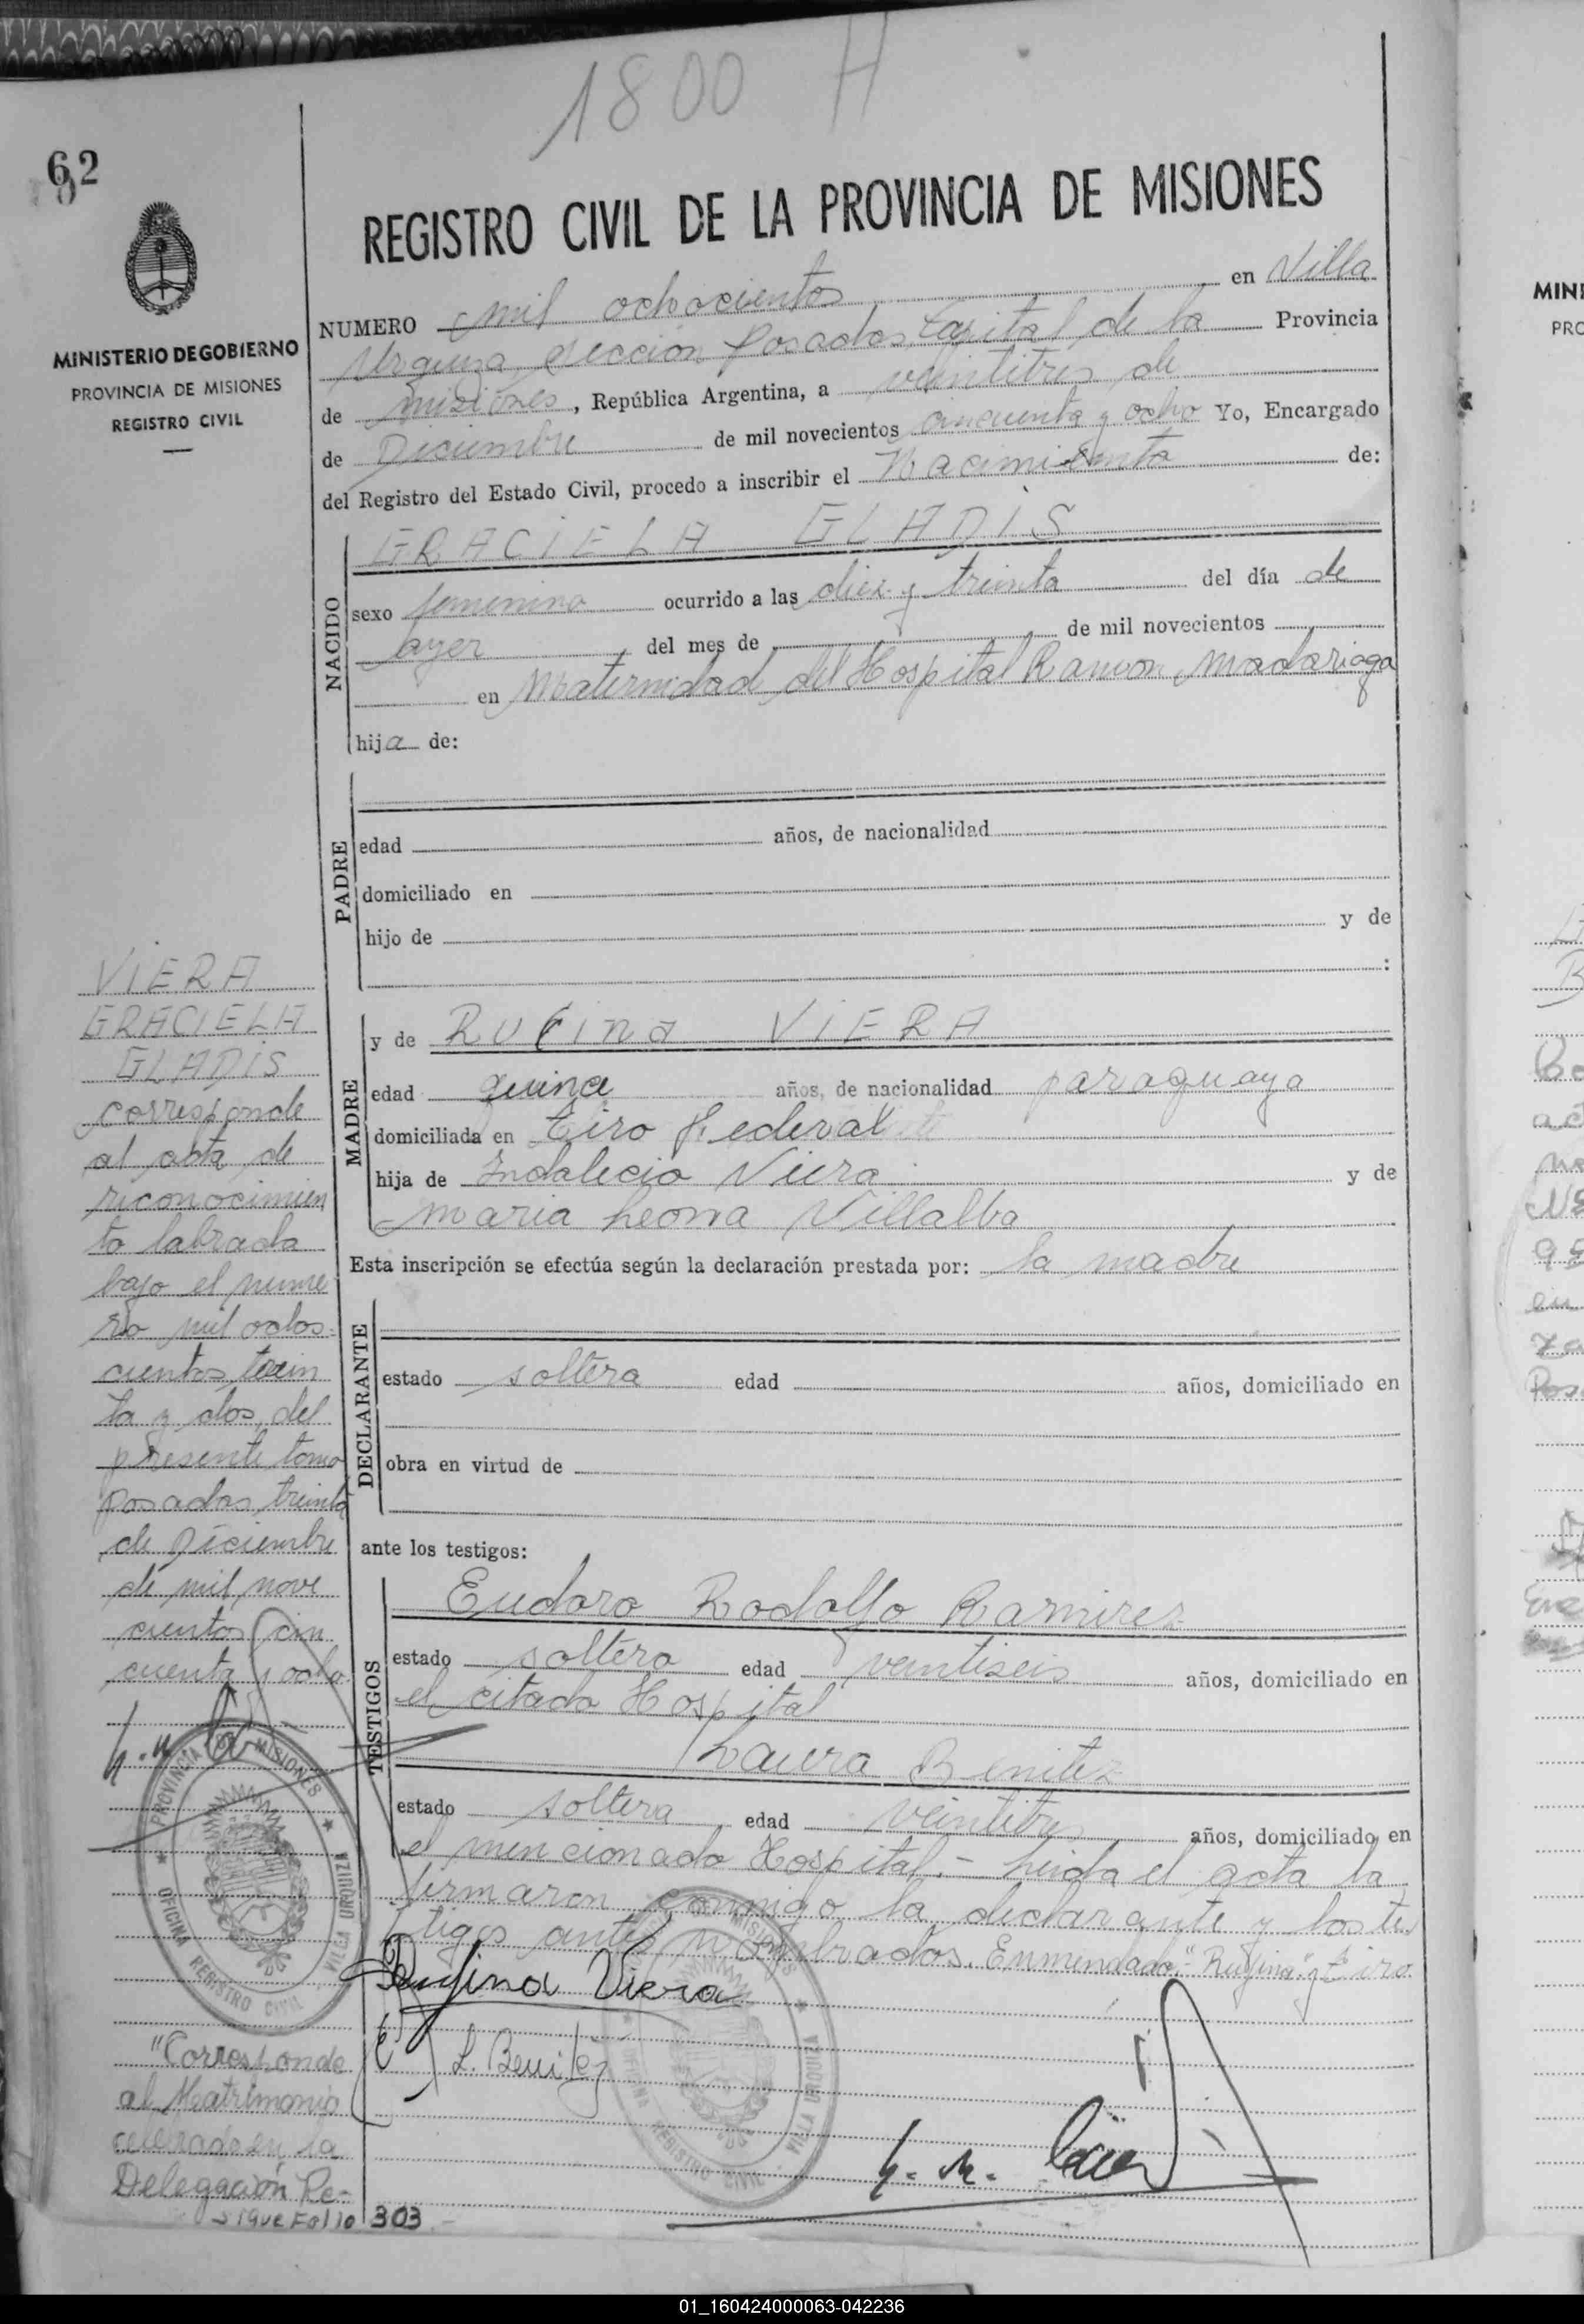 1800 H
62
MINISTERIO DE GOBIERNO
PROVINCIA DE MISIONES
REGISTRO CIVIL
REGISTRO CIVIL DE LA PROVINCIA DE MISIONES
NUMERO mil ochocientos en Villa
Urquiza sección Posadas, Capital de la Provincia
de Misiones, República Argentina, a veintitres de
de Diciembre de mil novecientos cincuenta y ocho Yo, Encargado
del Registro del Estado Civil, procedo a inscribir el Nacimiento de:
NACIDO
GRACIELA GLADIS
sexo femenino ocurrido a las diez y treinta del día de
ayer del mes de de mil novecientos
en Maternidad del Hospital Ramon Madariaga
hija de:
PADRE
edad años, de nacionalidad
domiciliado en
hijo de y de
:
MADRE
y de Rufina VIERA
edad quince años, de nacionalidad paraguaya
domiciliada en Tiro Federal
hija de Indalecio Viera y de
Maria Leona Villalba
Esta inscripción se efectúa según la declaración prestada por: la madre
DECLARANTE
estado soltera edad años, domiciliado en
obra en virtud de
ante los testigos:
TESTIGOS
Eudoro Rodolfo Ramirez
estado soltero edad veintiseis años, domiciliado en
el citado Hospital
Laura Benitez
estado soltera edad veintitres años, domiciliado en
el mencionado Hospital.- Leida el acta la
firmaron conmigo la declarante y los tes
tigos antes nombrados. Enmendado: "Rufina" y Tiro
Rufina Viera
L. Benitez
VIERA
GRACIELA
GLADIS
corresponde
al acta de
reconocimien
to labrada
bajo el nume
ro mil ochos=
cientos trein
ta y dos, del
presente tomo
Posadas, treinta
de Diciembre
de mil nove
cientos cin
cuenta y ocho
PROVINCIA DE MISIONES
OFICINA REGISTRO CIVIL VILLA URQUIZA
MISIONES
OFICINA REGISTRO CIVIL VILLA URQUIZA
"Corresponde
al Matrimonio
celebrado en la
Delegación Re-
SIGUE FOLIO 303
MINI
PRO
01_160424000063-042236